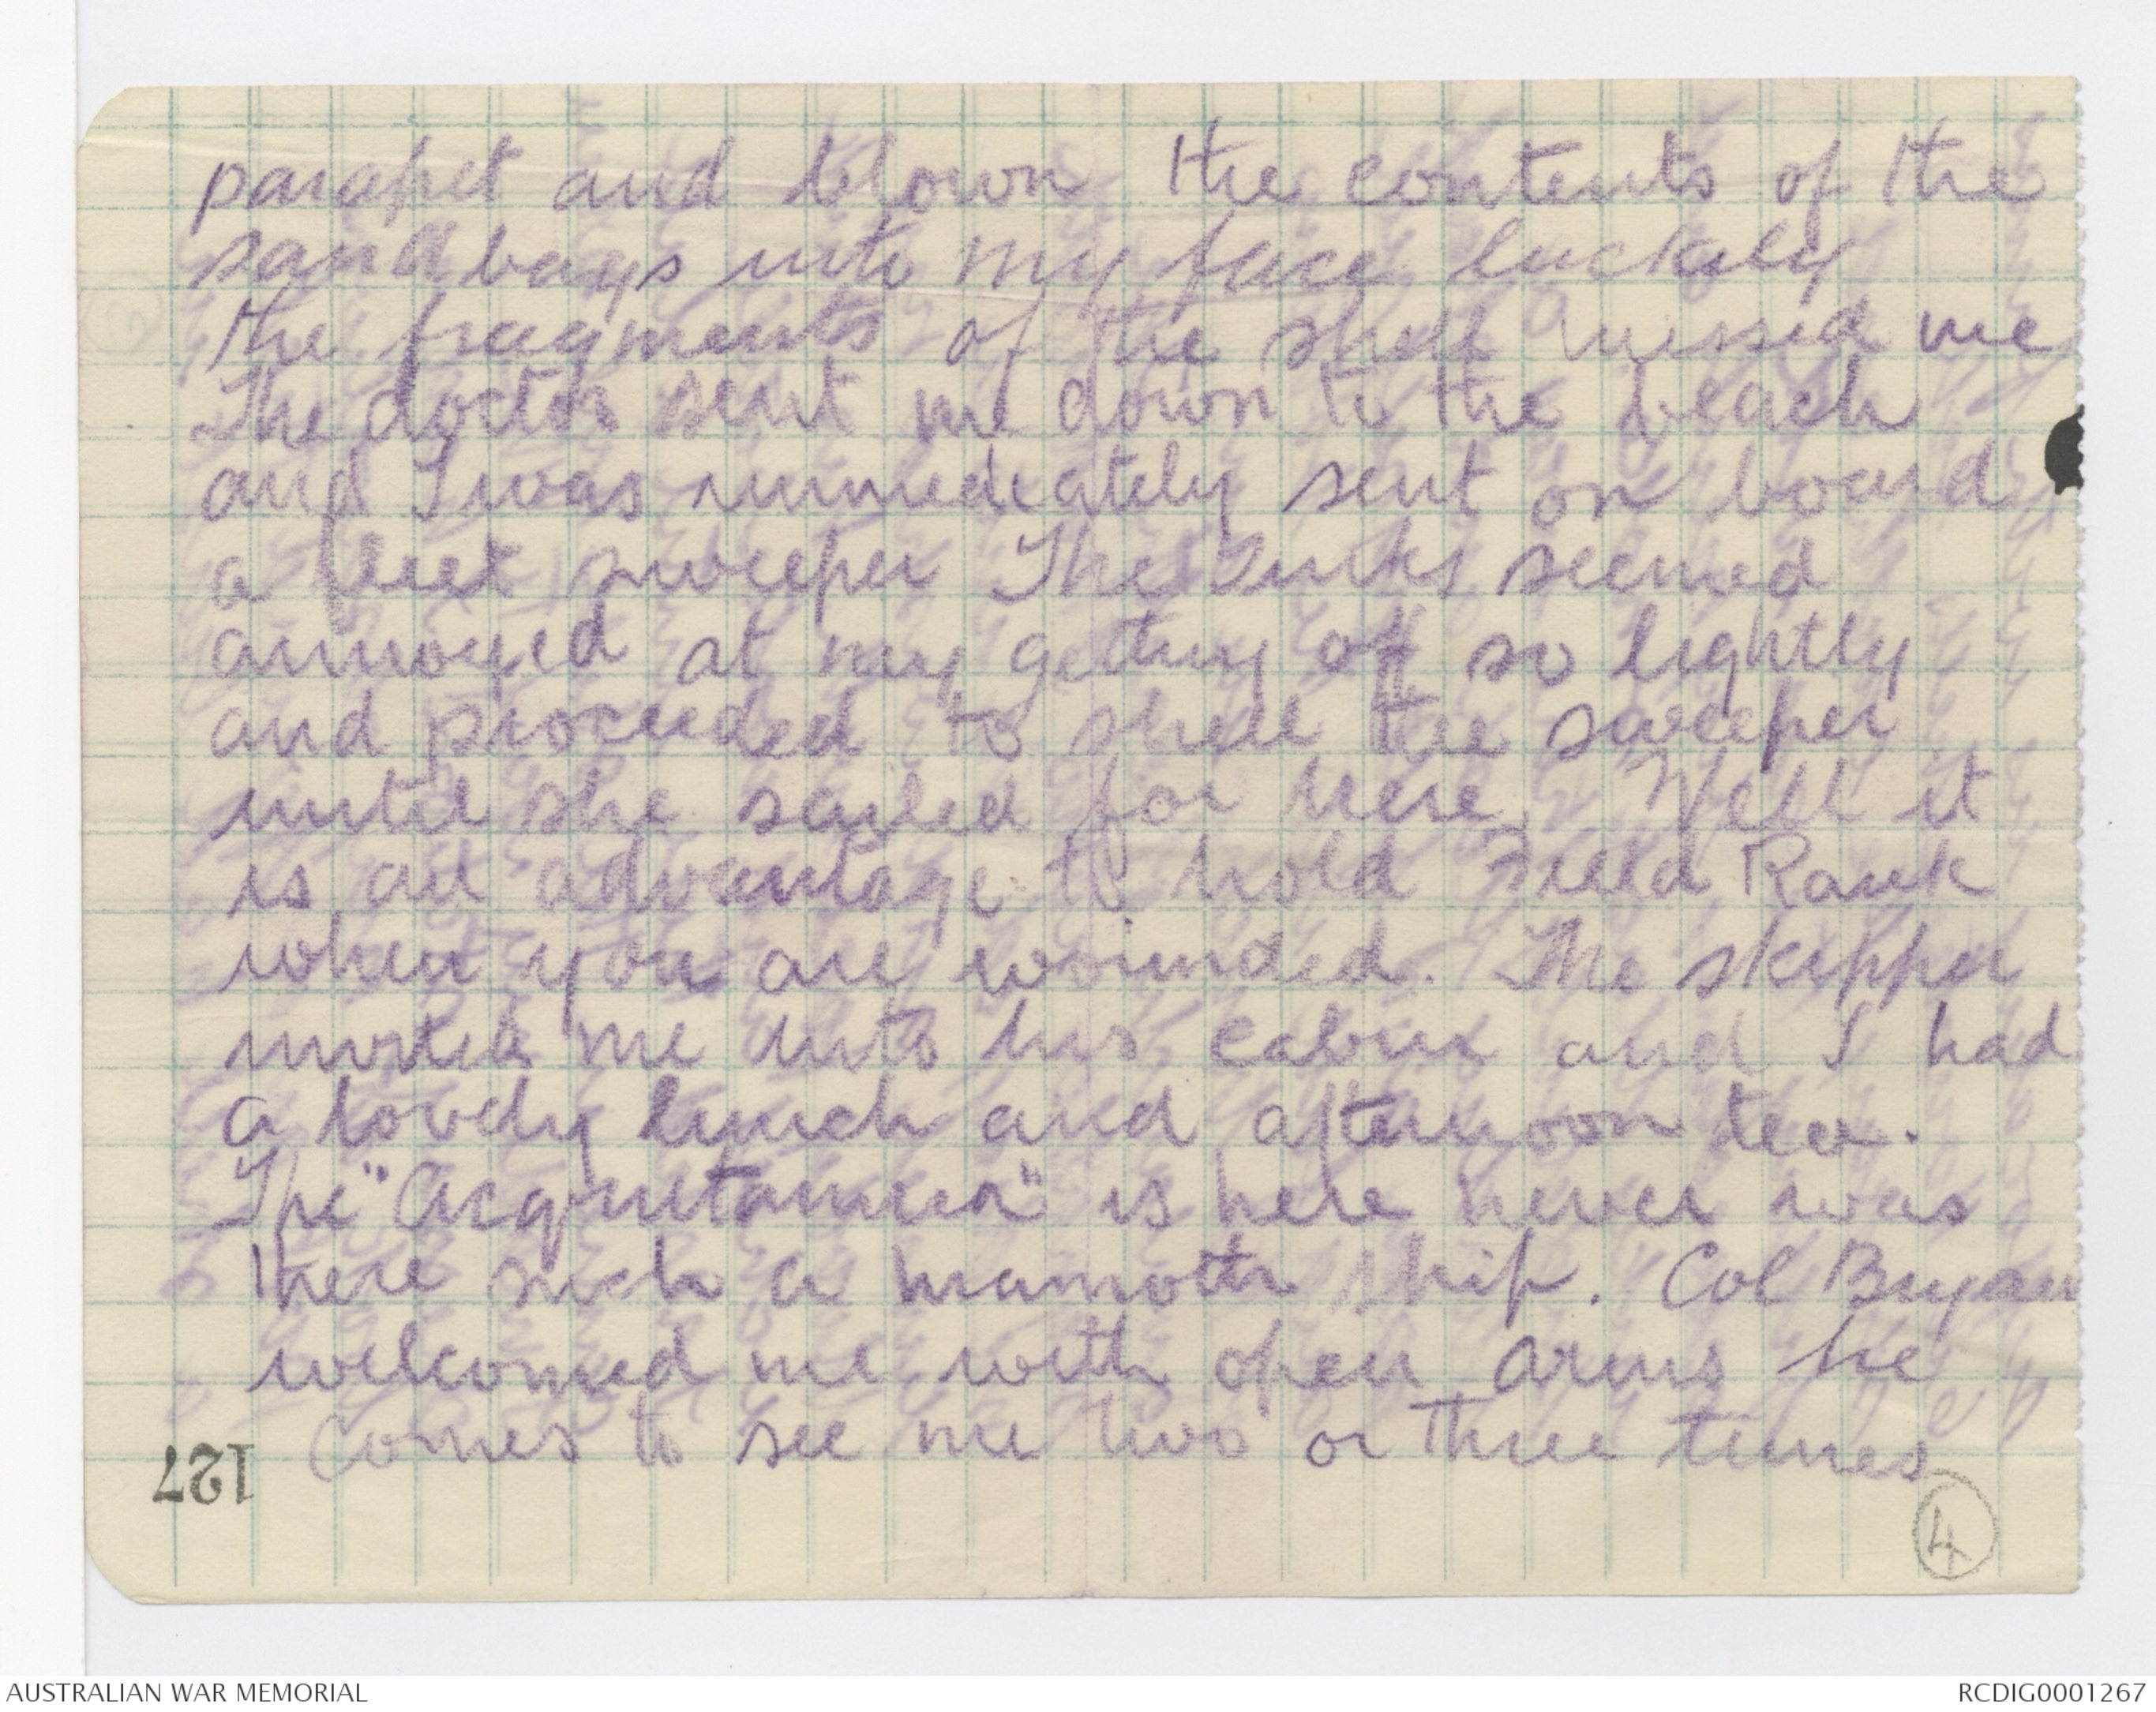 parapet and blown the contents of the
sandbags into my face luckily
the fragments of the shell missed me
The doctor sent me down to the beach
and I was immediately sent on board
a fleet sweeper The Turks seemed
annoyed at my getting off so lightly
and proceeded to shell the sweeper
until she sailed for here. Well it
is an advantage to hold Field Rank
when you are wounded. The skipper
invited me into his cabin and I had
a lovely lunch and afternoon tea.
The "Acquitannia" is here never was
there such a mamoth ship. Col Bryan
welcomed me with open arms he
comes to see me two or three times
127
4
AUSTRALIAN WAR MEMORIAL
RCDIG0001267